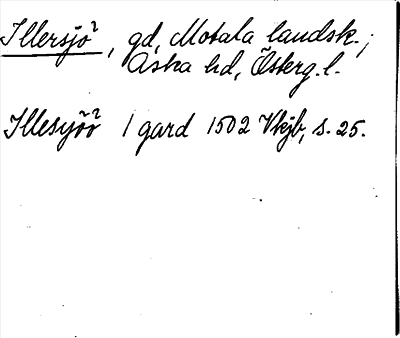 Illersjö², gd, Motala landsk.;
Aska hd, Österg.l.
Illesyöö² 1 gard 1502 Vkjb, s. 25.